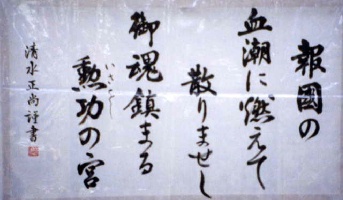 報國の
血潮に燃えて
散りませし
御魂鎮まる
いさをし
勲功の宮
清水正尚謹書